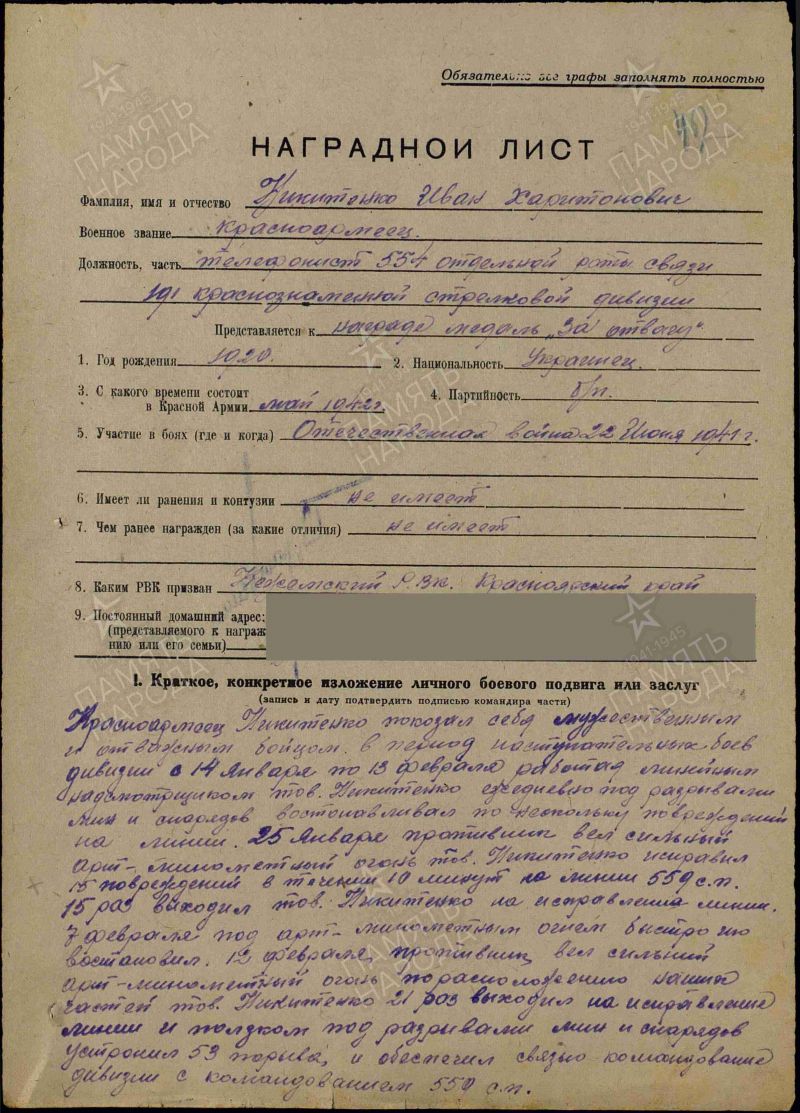 Обязательно все графы заполнять полностью
НАГРАДНОЙ ЛИСТ
Фамилия, имя и отчество Никитенко Иван Харитонович
Военное звание красноармеец.
Должность, часть телефонист 554 отдельной роты связи
191 краснознаменной стрелковой дивизии
Представляется к награде медаль „За отвагу“
1. Год рождения 1920. 2. Национальность Украинец.
3. С какого времени состоит
в Красной Армии май 1942 г. 4. Партийность б/п.
5. Участие в боях (где и когда) Отечественная война 22 Июня 1941 г.
6. Имеет ли ранения и контузии не имеет
7. Чем ранее награжден (за какие отличия) не имеет
8. Каким РВК призван Р.В.К. Красноярский край
9. Постоянный домашний адрес:
(представляемого к награж
нию или его семьи)
I. Краткое, конкретное изложение личного боевого подвига или заслуг
(запись и дату подтвердить подписью командира части)
Красноармеец Никитенко показал себя мужественным
и отважным бойцом. в период наступательных боев
дивизии с 14 Января по 13 февраля работая линейным
надсмотрщиком тов. Никитенко ежедневно под разрывами
мин и снарядов востонавливал по нескольку повреждений
на линии. 25 Января противник вел сильный
арт-минометный огонь тов. Никитенко исправил
15 повреждений в течении 10 минут на линии 559 с.п.
15 раз выходил тов. Никитенко на исправления линии.
7 февраля под арт-минометным огнем быстро ею
востановил. 12 февраля, противник вел сильний
арт-минометный огонь по расположению наших
частей тов. Никитенко 21 раз выходил на исправление
линии и ползком под разрывами мин и снарядов
устронил 53 порыва, и обеспечил связью командование
дивизии с командованием 559 с.п.
1941-1945
ПАМЯТЬ
НАРОДА